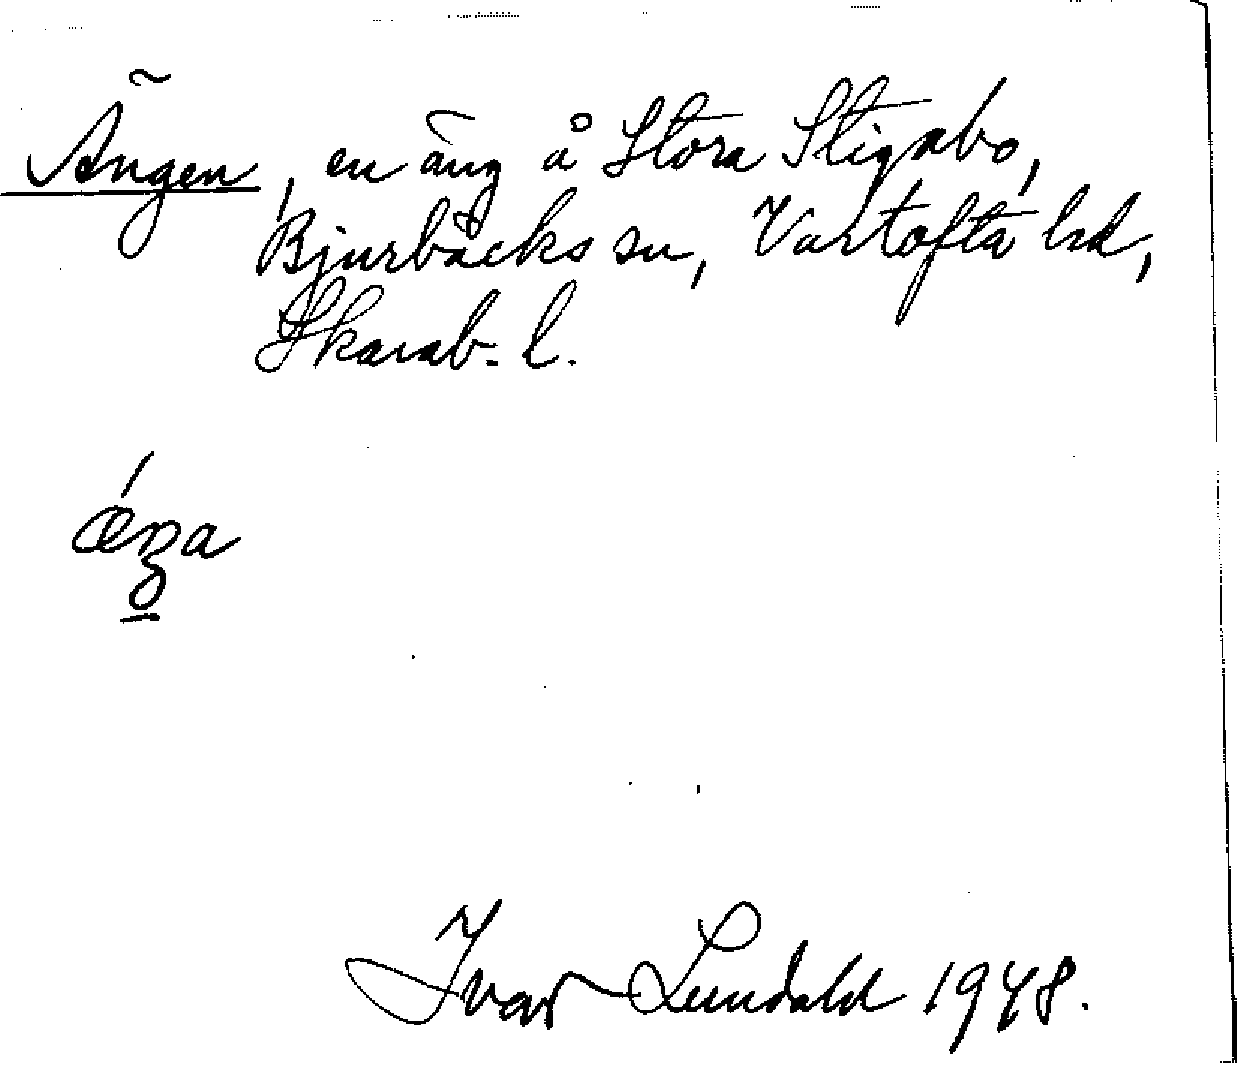 Ängen, en äng å Stora Stignabo,
Bjurbäcks sn, Vartofta hd,
Skarab. l.
Ivar Lundahl 1948.